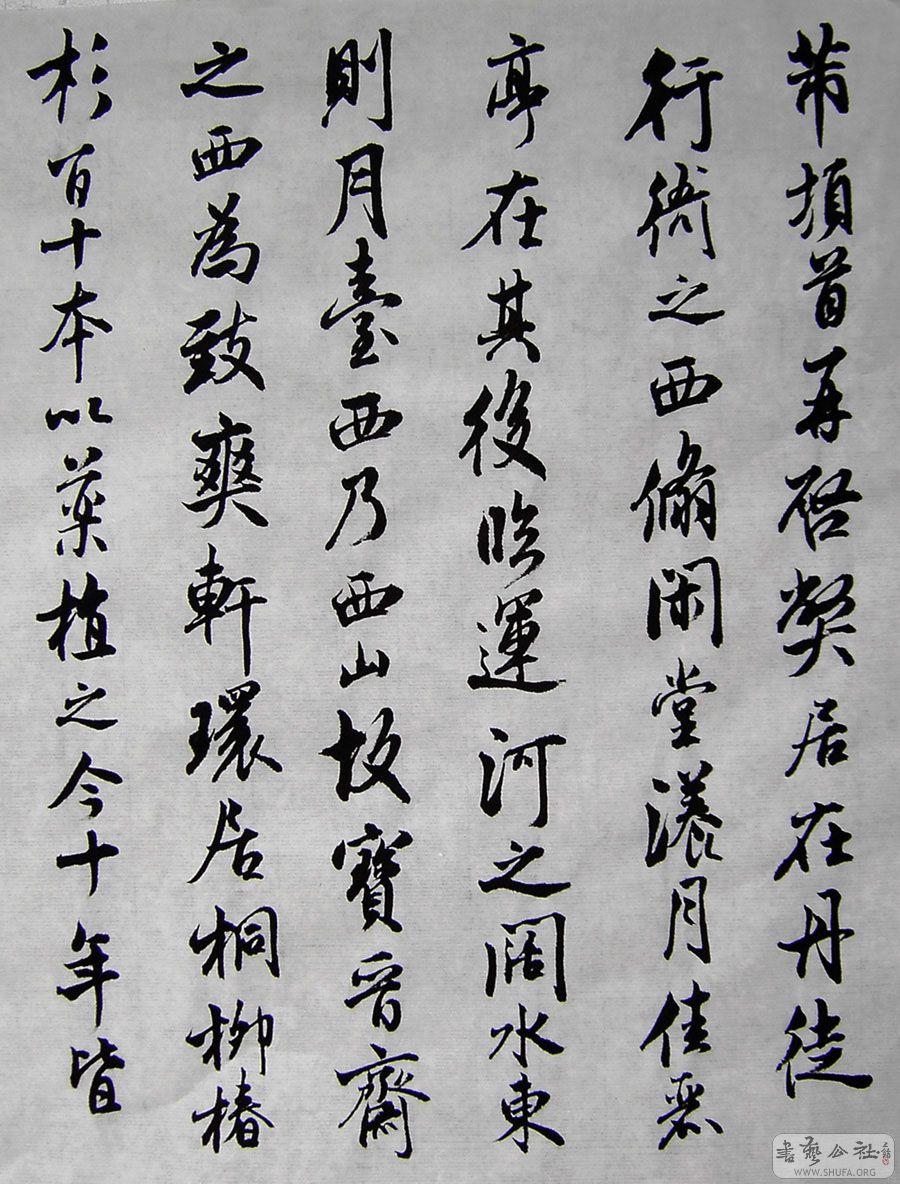 芾頓首再啓獘居在丹徒
行衙之西翛閑堂漾月佳麗
亭在其後臨運河之闊水東
則月臺西乃西山故寶晉齋
之西為致爽軒環居桐柳椿
杉百十本以藥植之今十年皆
書藝公社
WWW.SHUFA.ORG